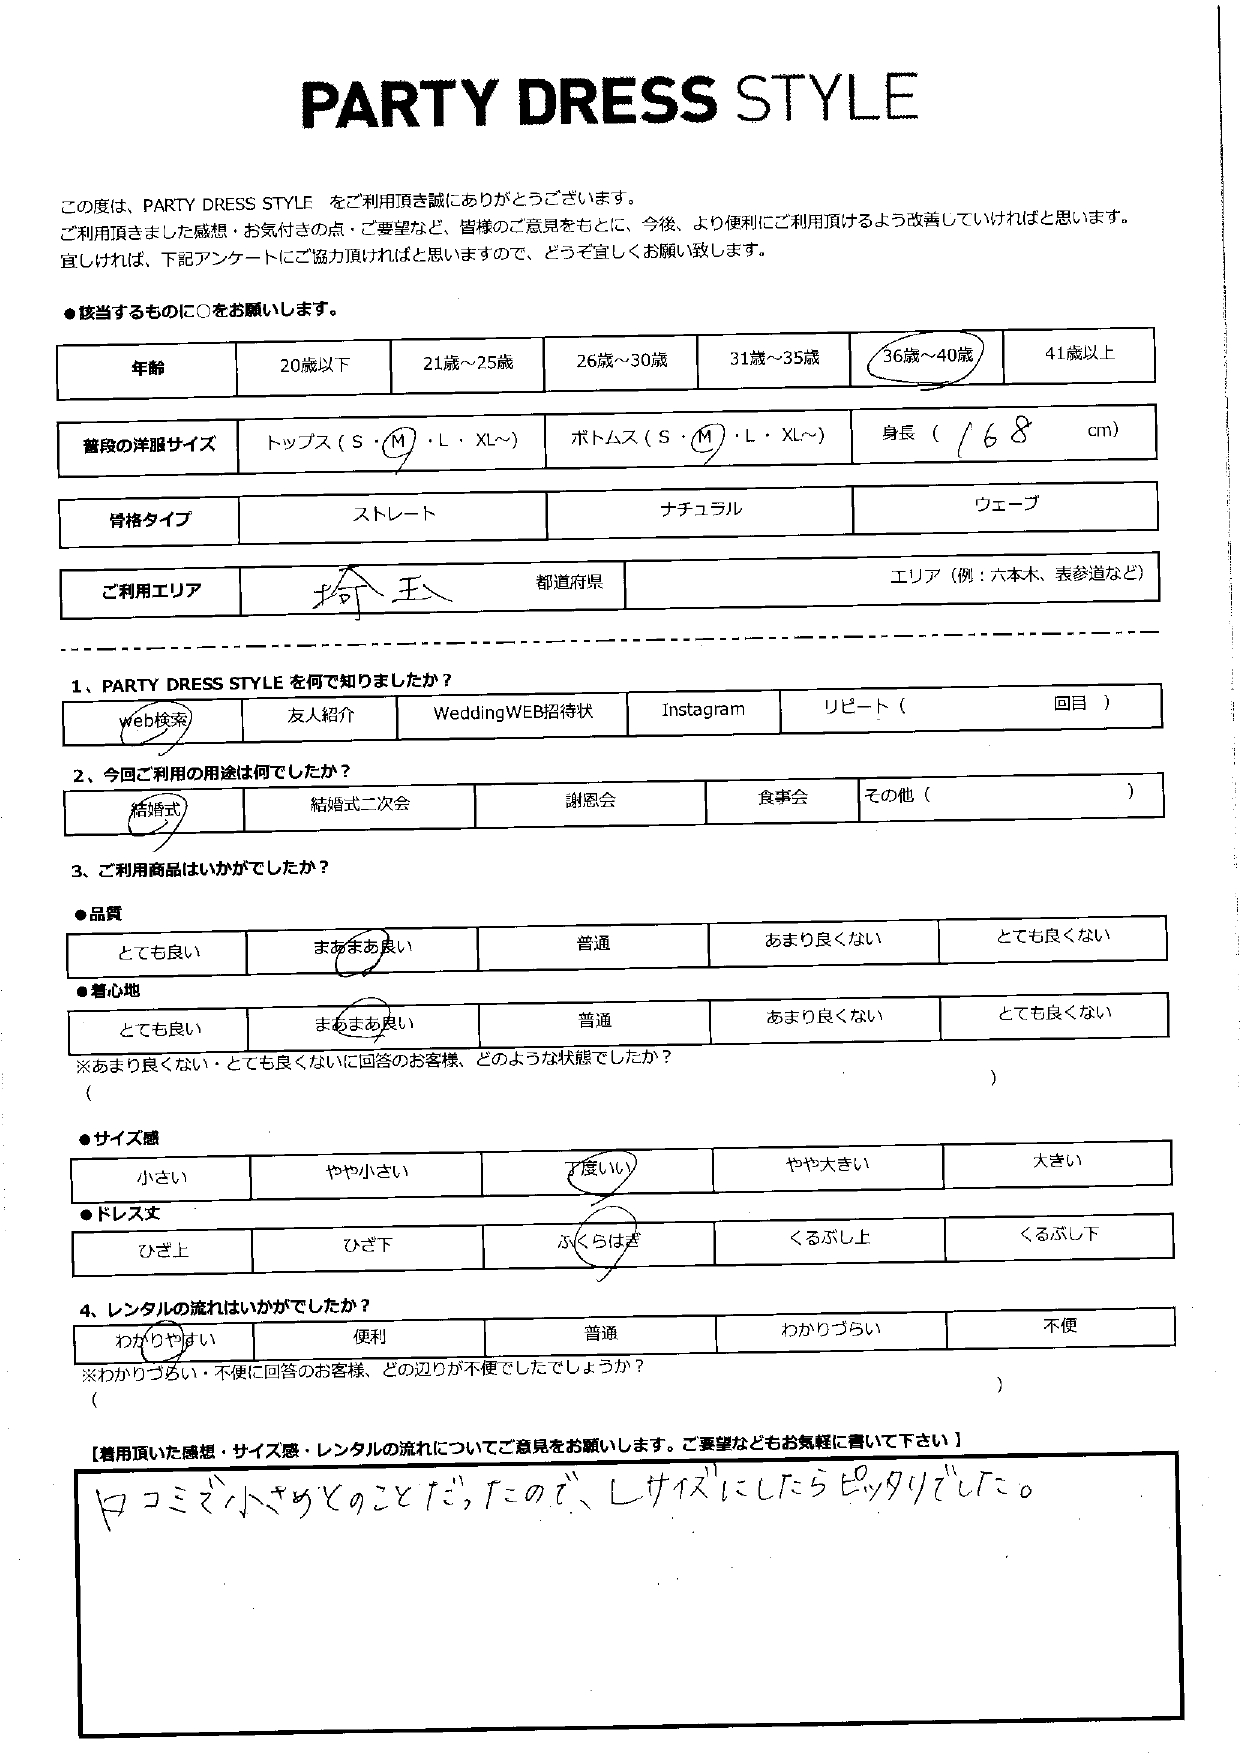 PARTY DRESS STYLE
この度は、PARTY DRESS STYLE をご利用頂き誠にありがとうございます。
ご利用頂きました感想・お気付きの点・ご要望など、皆様のご意見をもとに、今後、より便利にご利用頂けるよう改善していければと思います。
宜しければ、下記アンケートにご協力頂ければと思いますので、どうぞ宜しくお願い致します。
●該当するものに○をお願いします。
年齢 20歳以下 21歳～25歳 26歳～30歳 31歳～35歳 36歳～40歳 41歳以上
普段の洋服サイズ トップス ( S ・ M ・ L ・ XL～) ボトムス ( S ・ M ・ L ・ XL～) 身長 ( 168 cm)
骨格タイプ ストレート ナチュラル ウェーブ
ご利用エリア 埼玉 都道府県 エリア（例：六本木、表参道など）
1、PARTY DRESS STYLE を何で知りましたか？
web検索 友人紹介 WeddingWEB招待状 Instagram リピート ( 回目 )
2、今回ご利用の用途は何でしたか？
結婚式 結婚式二次会 謝恩会 食事会 その他 ( )
3、ご利用商品はいかがでしたか？
●品質
とても良い まあまあ良い 普通 あまり良くない とても良くない
●着心地
とても良い まあまあ良い 普通 あまり良くない とても良くない
※あまり良くない・とても良くないに回答のお客様、どのような状態でしたか？
( )
●サイズ感
小さい やや小さい 丁度いい やや大きい 大きい
●ドレス丈
ひざ上 ひざ下 ふくらはぎ くるぶし上 くるぶし下
4、レンタルの流れはいかがでしたか？
わかりやすい 便利 普通 わかりづらい 不便
※わかりづらい・不便に回答のお客様、どの辺りが不便でしたでしょうか？
( )
【着用頂いた感想・サイズ感・レンタルの流れについてご意見をお願いします。ご要望などもお気軽に書いて下さい 】
口コミで小さめとのことだったので、Lサイズにしたらピッタリでした。